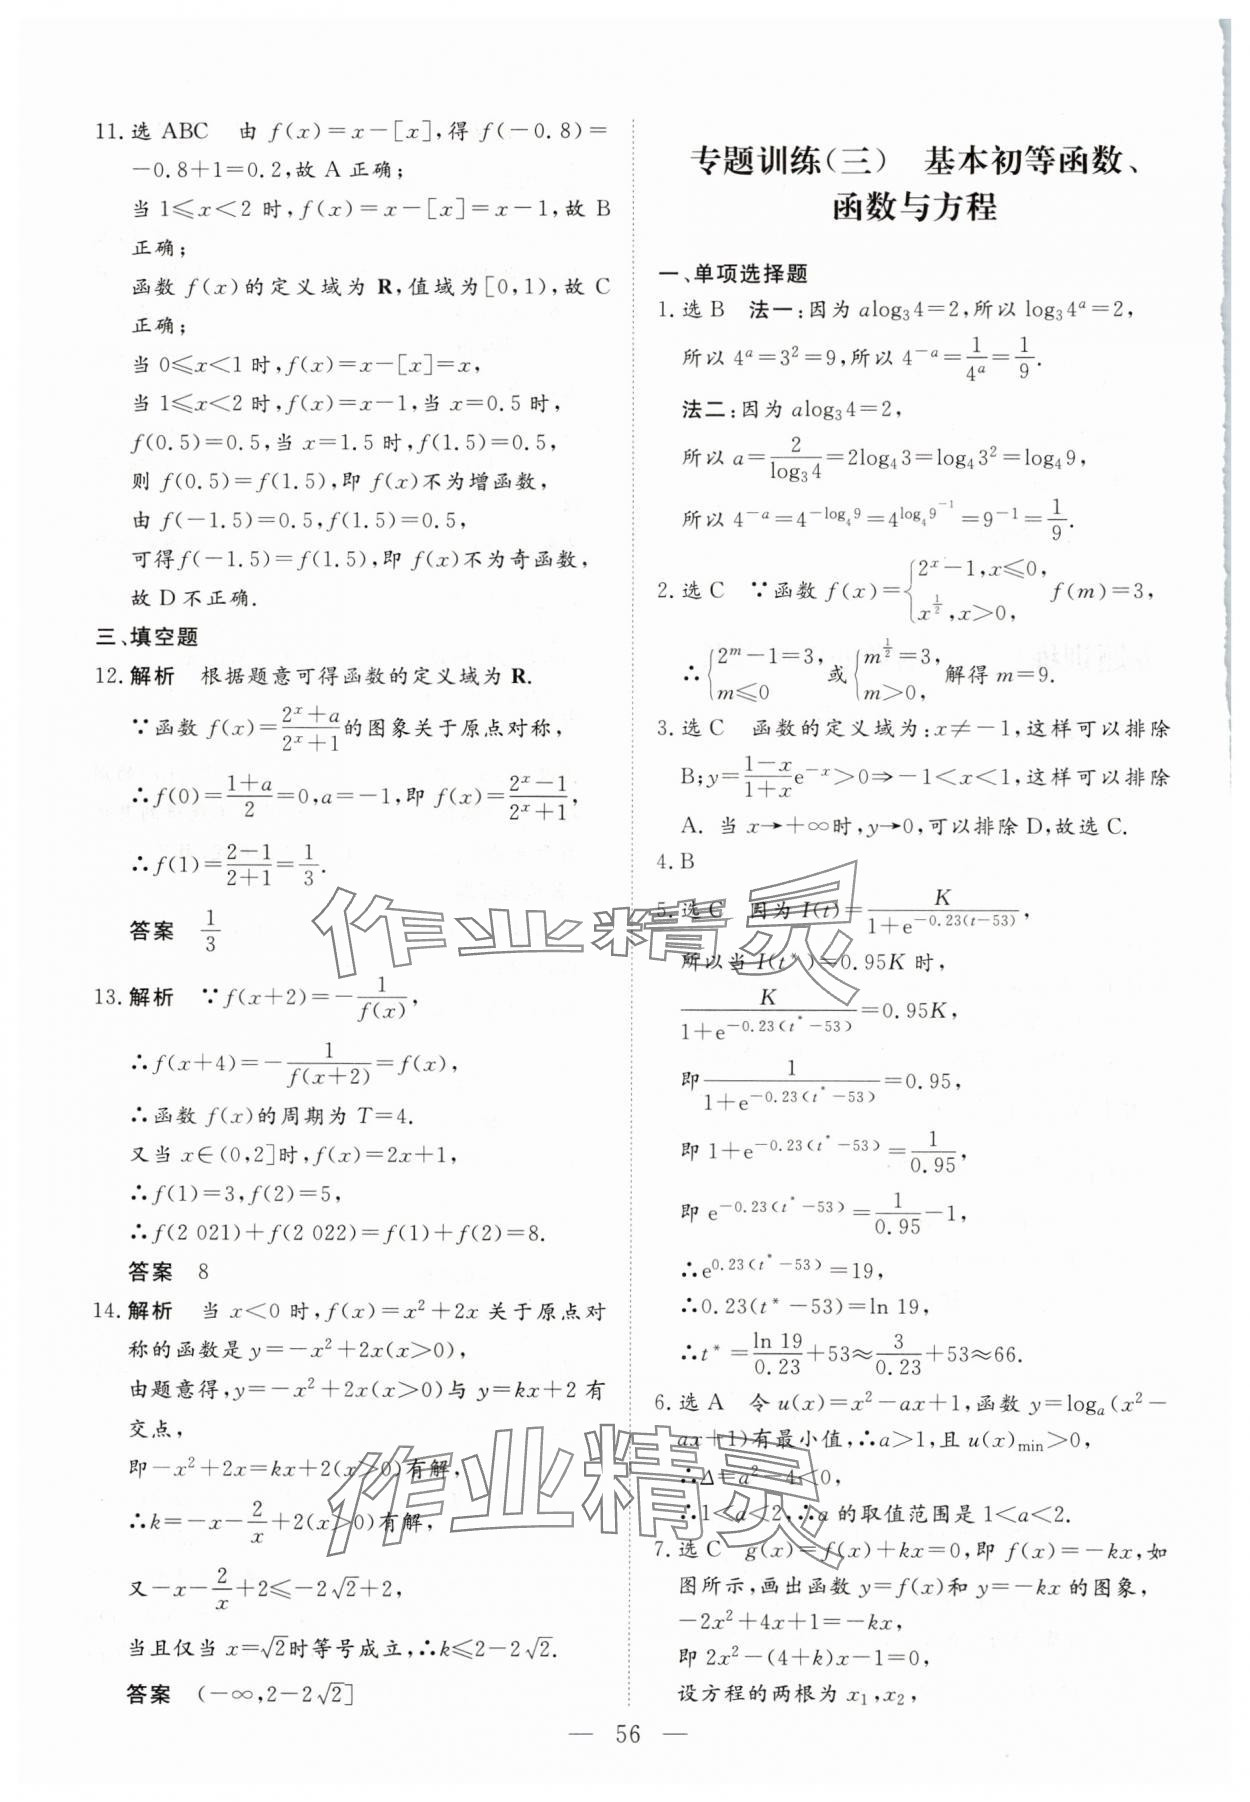 11. 选 ABC　由 f(x)=x-[x],得 f(-0.8)=
-0.8+1=0.2,故 A 正确;
当 1⩽x<2 时,f(x)=x-[x]=x-1,故 B
正确;
函数 f(x)的定义域为 R,值域为[0,1),故 C
正确;
当 0⩽x<1 时,f(x)=x-[x]=x,
当 1⩽x<2 时,f(x)=x-1,当 x=0.5 时,
f(0.5)=0.5,当 x=1.5 时,f(1.5)=0.5,
则 f(0.5)=f(1.5),即 f(x)不为增函数,
由 f(-1.5)=0.5,f(1.5)=0.5,
可得f(-1.5)=f(1.5),即 f(x)不为奇函数,
故 D 不正确.
三、填空题
12. 解析　根据题意可得函数的定义域为 R.
∵函数 f(x)=(2^x+a)/(2^x+1)的图象关于原点对称,
∴f(0)=(1+a)/2=0,a=-1,即 f(x)=(2^x-1)/(2^x+1),
∴f(1)=(2-1)/(2+1)=1/3.
答案　1/3
13. 解析　∵f(x+2)=-1/f(x),
∴f(x+4)=-1/f(x+2)=f(x),
∴函数 f(x)的周期为 T=4.
又当 x∈(0,2]时,f(x)=2x+1,
∴f(1)=3,f(2)=5,
∴f(2 021)+f(2 022)=f(1)+f(2)=8.
答案　8
14. 解析　当 x<0 时,f(x)=x²+2x 关于原点对
称的函数是 y=-x²+2x(x>0),
由题意得,y=-x²+2x(x>0)与 y=kx+2 有
交点,
即-x²+2x=kx+2(x>0)有解,
∴k=-x-2/x+2(x>0)有解,
又-x-2/x+2⩽-2√2+2,
当且仅当 x=√2时等号成立,∴k⩽2-2√2.
答案　(-∞,2-2√2]
专题训练(三)　基本初等函数、
函数与方程
一、单项选择题
1. 选 B　法一:因为 alog₃4=2,所以 log₃4^a=2,
所以 4^a=3²=9,所以 4^(-a)=1/4^a=1/9.
法二:因为 alog₃4=2,
所以 a=2/log₃4=2log₄3=log₄3²=log₄9,
所以 4^(-a)=4^(-log₄9)=4^(log₄9^(-1))=9^(-1)=1/9.
2. 选 C　∵函数 f(x)={2^x-1,x⩽0, x^(1/2),x>0,　f(m)=3,
∴{2^m-1=3, m⩽0 或{m^(1/2)=3, m>0, 解得 m=9.
3. 选 C　函数的定义域为:x≠-1,这样可以排除
B;y=(1-x)/(1+x)e^(-x)>0⇒-1<x<1,这样可以排除
A. 当 x→+∞时,y→0,可以排除 D,故选 C.
4. B
5. 选 C　因为 I(t)=K/(1+e^(-0.23(t-53))),
所以当 I(t*)=0.95K 时,
K/(1+e^(-0.23(t*-53)))=0.95K,
即1/(1+e^(-0.23(t*-53)))=0.95,
即 1+e^(-0.23(t*-53))=1/0.95,
即 e^(-0.23(t*-53))=1/0.95-1,
∴e^(0.23(t*-53))=19,
∴0.23(t*-53)=ln 19,
∴t*=ln 19/0.23+53≈3/0.23+53≈66.
6. 选 A　令 u(x)=x²-ax+1,函数 y=logₐ(x²-
ax+1)有最小值,∴a>1,且 u(x)min>0,
∴Δ=a²-4<0,
∴1<a<2,∴a 的取值范围是 1<a<2.
7. 选 C　g(x)=f(x)+kx=0,即 f(x)=-kx,如
图所示,画出函数 y=f(x)和 y=-kx 的图象,
-2x²+4x+1=-kx,
即 2x²-(4+k)x-1=0,
设方程的两根为 x₁,x₂,
— 56 —
作业精灵
作业精灵